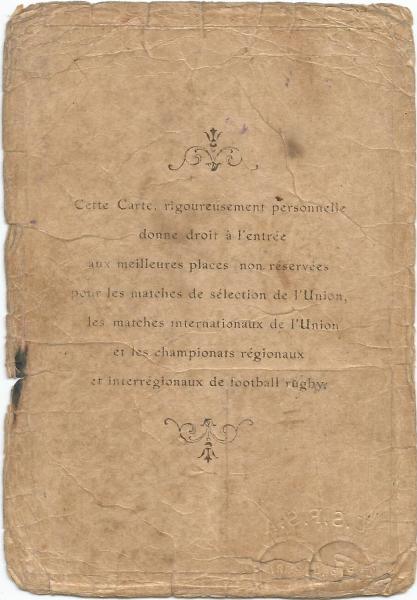 Cette Carte, rigoureusement personnelle
donne droit à l'entrée
aux meilleures places non réservées
pour les matches de sélection de l'Union,
les matches internationaux de l'Union
et les championats régionaux
et interrégionaux de football rugby.